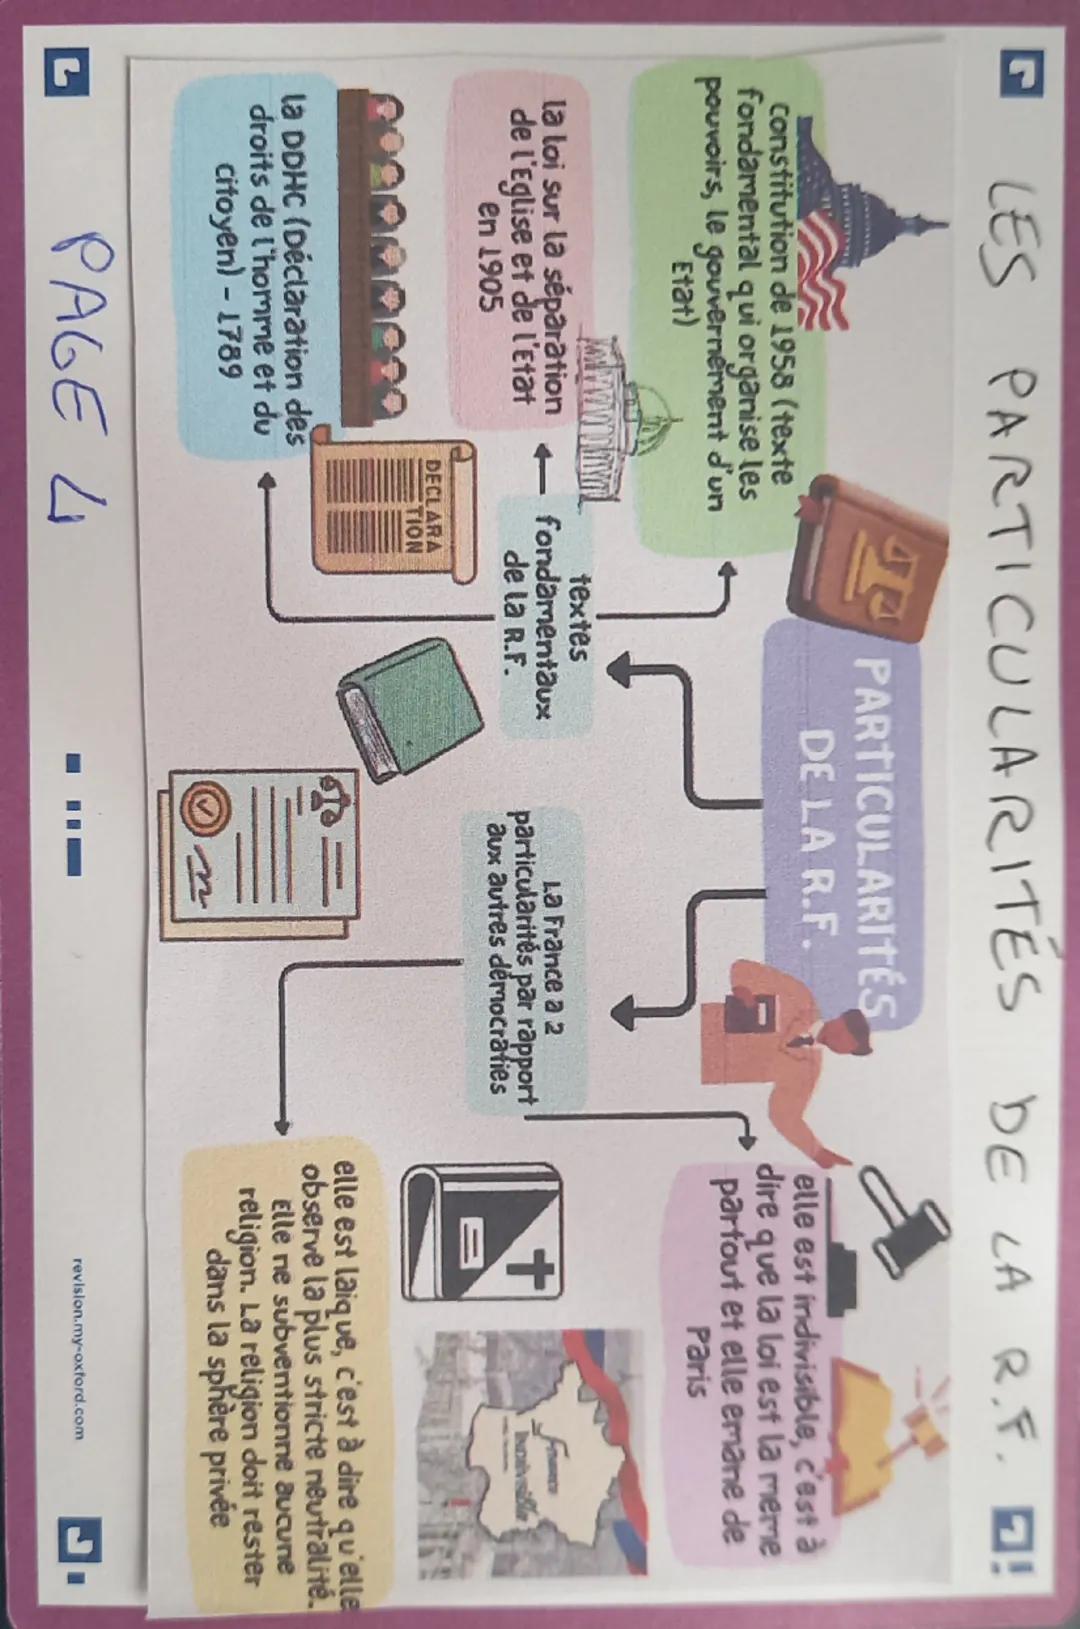 LES PARTICULARITÉS DE LA R.F.
PARTICULARITÉS
DE LA R.F.
constitution de 1958 (texte
fondamental qui organise les
pouvoirs, le gouvernement d'un
Etat)
la loi sur la séparation
de l'Eglise et de l'Etat
en 1905
la DDHC (Déclaration des
droits de l'homme et du
citoyen) - 1789
DECLARA
TION
textes
fondamentaux
de la R.F.
La France a 2
particularités par rapport
aux autres démocraties
elle est indivisible, c'est à
dire que la loi est la même
partout et elle émane de
Paris
France
Indivisible
elle est laïque, c'est à dire qu'elle
observe la plus stricte neutralité.
Elle ne subventionne aucune
religion. La religion doit rester
dans la sphère privée
PAGE 4
revision.my-oxford.com